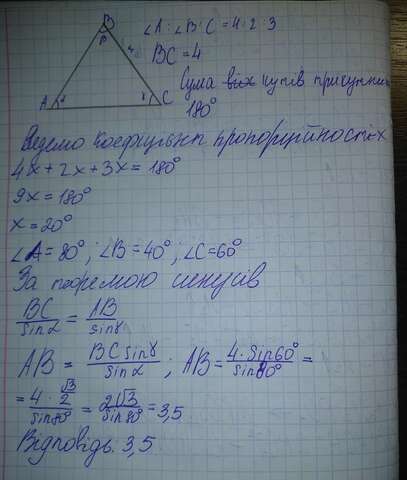 B
β
4
A
α
γ
C
∠A:∠B:∠C = 4:2:3
BC = 4
Сума всіх кутів трикутника
180°
Введемо коефіцієнт пропорційності x
4x + 2x + 3x = 180°
9x = 180°
x = 20°
∠A = 80°; ∠B = 40°; ∠C = 60°
За теоремою синусів
BC/sinα = AB/sinγ
AB = BC sinγ/sinα; AB = 4·sin60°/sin80° =
= 4·√3/2/sin80° = 2√3/sin80° = 3,5
Відповідь: 3,5